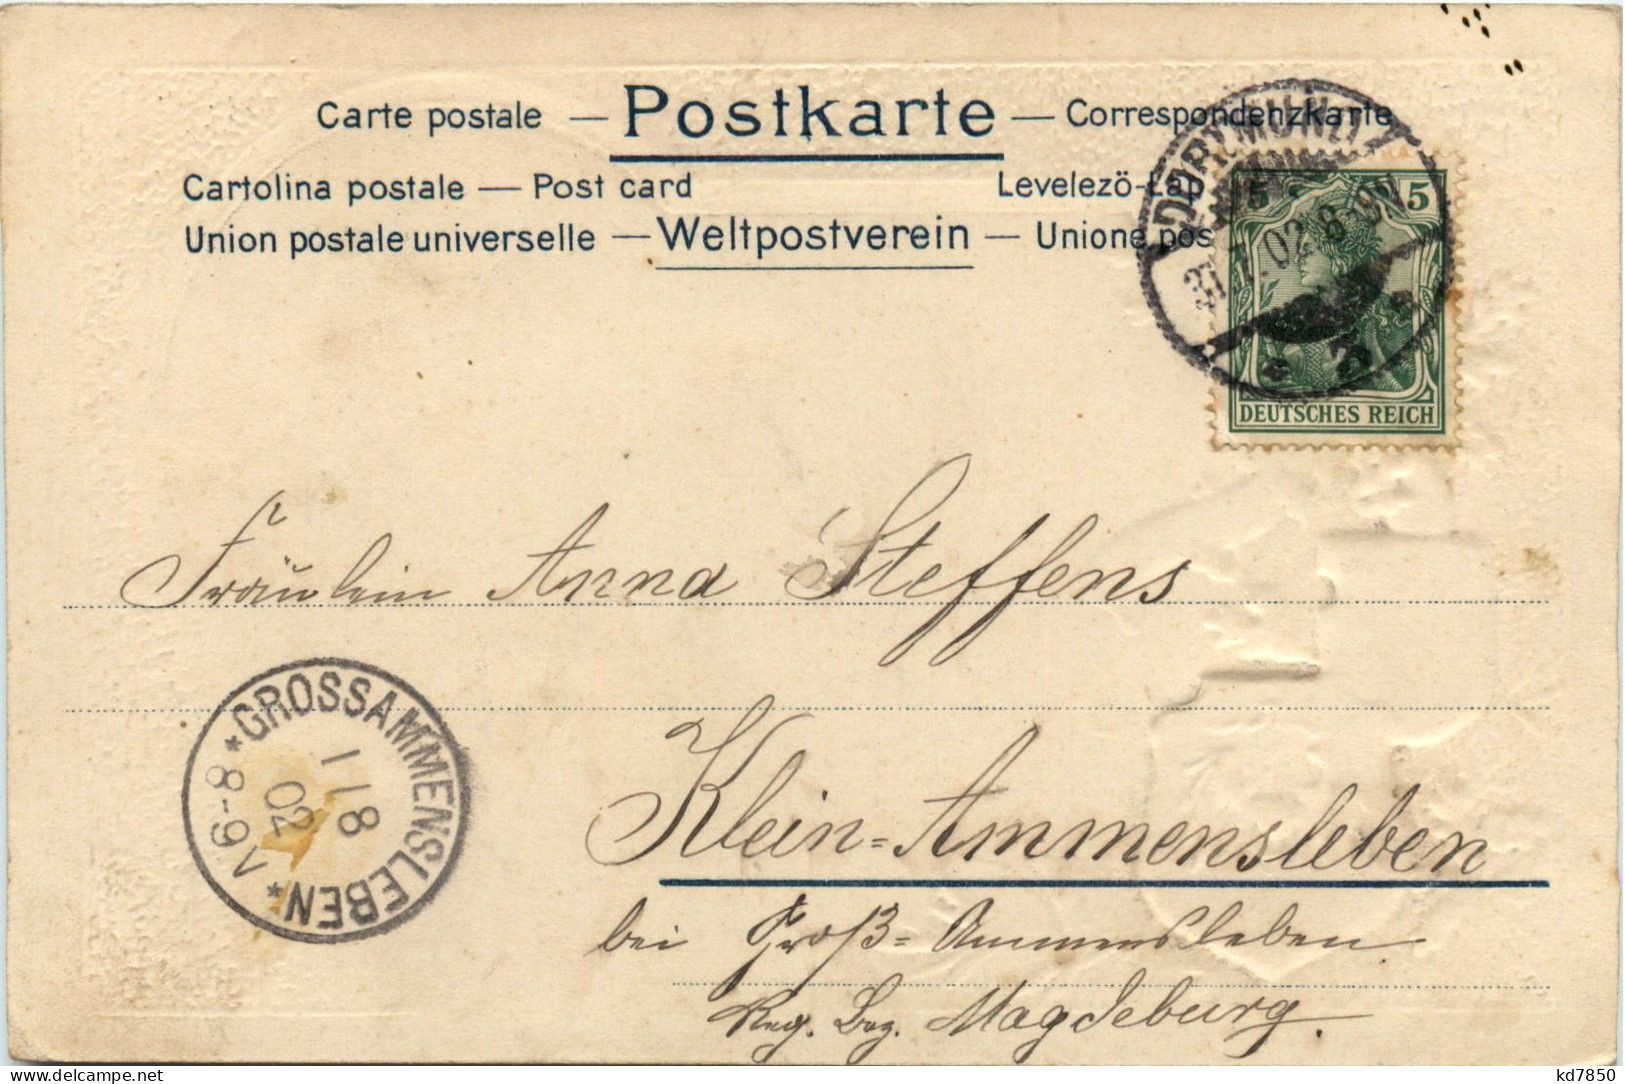 Carte postale — Postkarte — Correspondenzkarte
Cartolina postale — Post card
Levelezö-Lap
Union postale universelle — Weltpostverein — Unione pos
DORTMUND
02. 8-9V.
5 5
DEUTSCHES REICH
Fräulein Anna Steffens
* GROSSAMMENSLEBEN *
1 / 8
02
8-9V
Klein-Ammensleben
bei Groß-Ammensleben
Reg. Bez. Magdeburg.
www.delcampe.net
kd7850